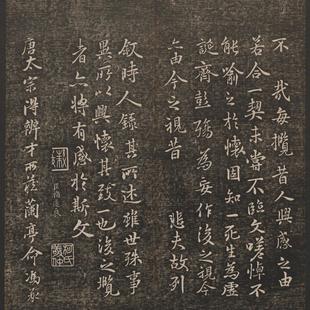 不 哉每攬昔人興感之由
若合一契未嘗不臨文嗟悼不
能喻之於懷固知一死生為虛
誕齊彭殤為妄作後之視今
亦由今之視昔 悲夫故列
敘時人錄其所述雖世殊事
異所以興懷其致一也後之攬
者亦將有感於斯文
唐太宗得辯才所藏蘭亭命馮承